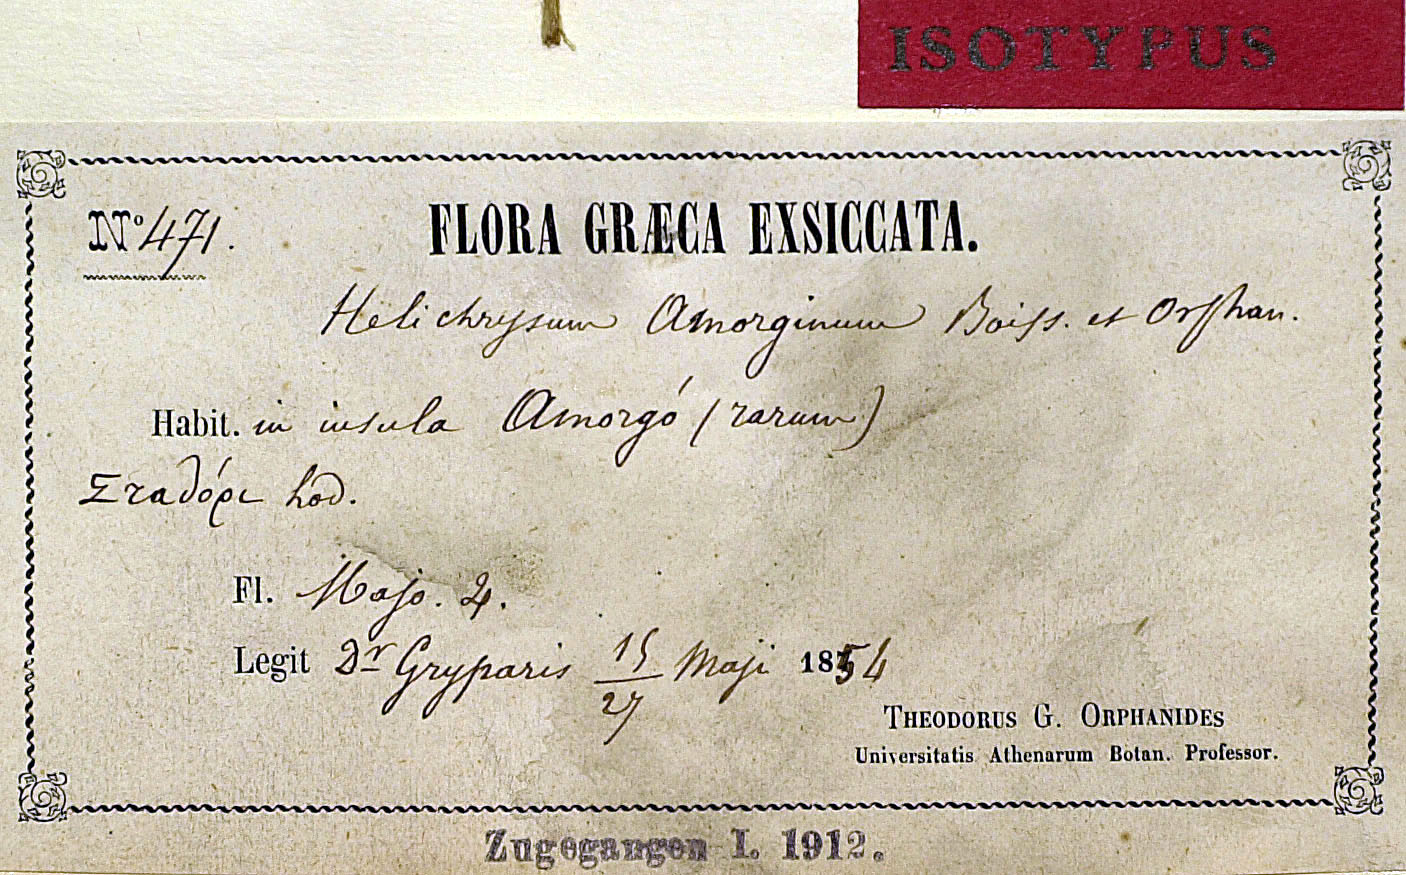 ISOTYPUS
Nº 471.
FLORA GRÆCA EXSICCATA.
Helichrysum Amorginum Boiss. et Orphan.
Habit. in insula Amorgó (rarum)
Σταδόρι hod.
Fl. Majo. ♃.
Legit Dr Gryparis 15/27 Maji 1854
THEODORUS G. ORPHANIDES
Universitatis Athenarum Botan. Professor.
Zugegangen I. 1912.